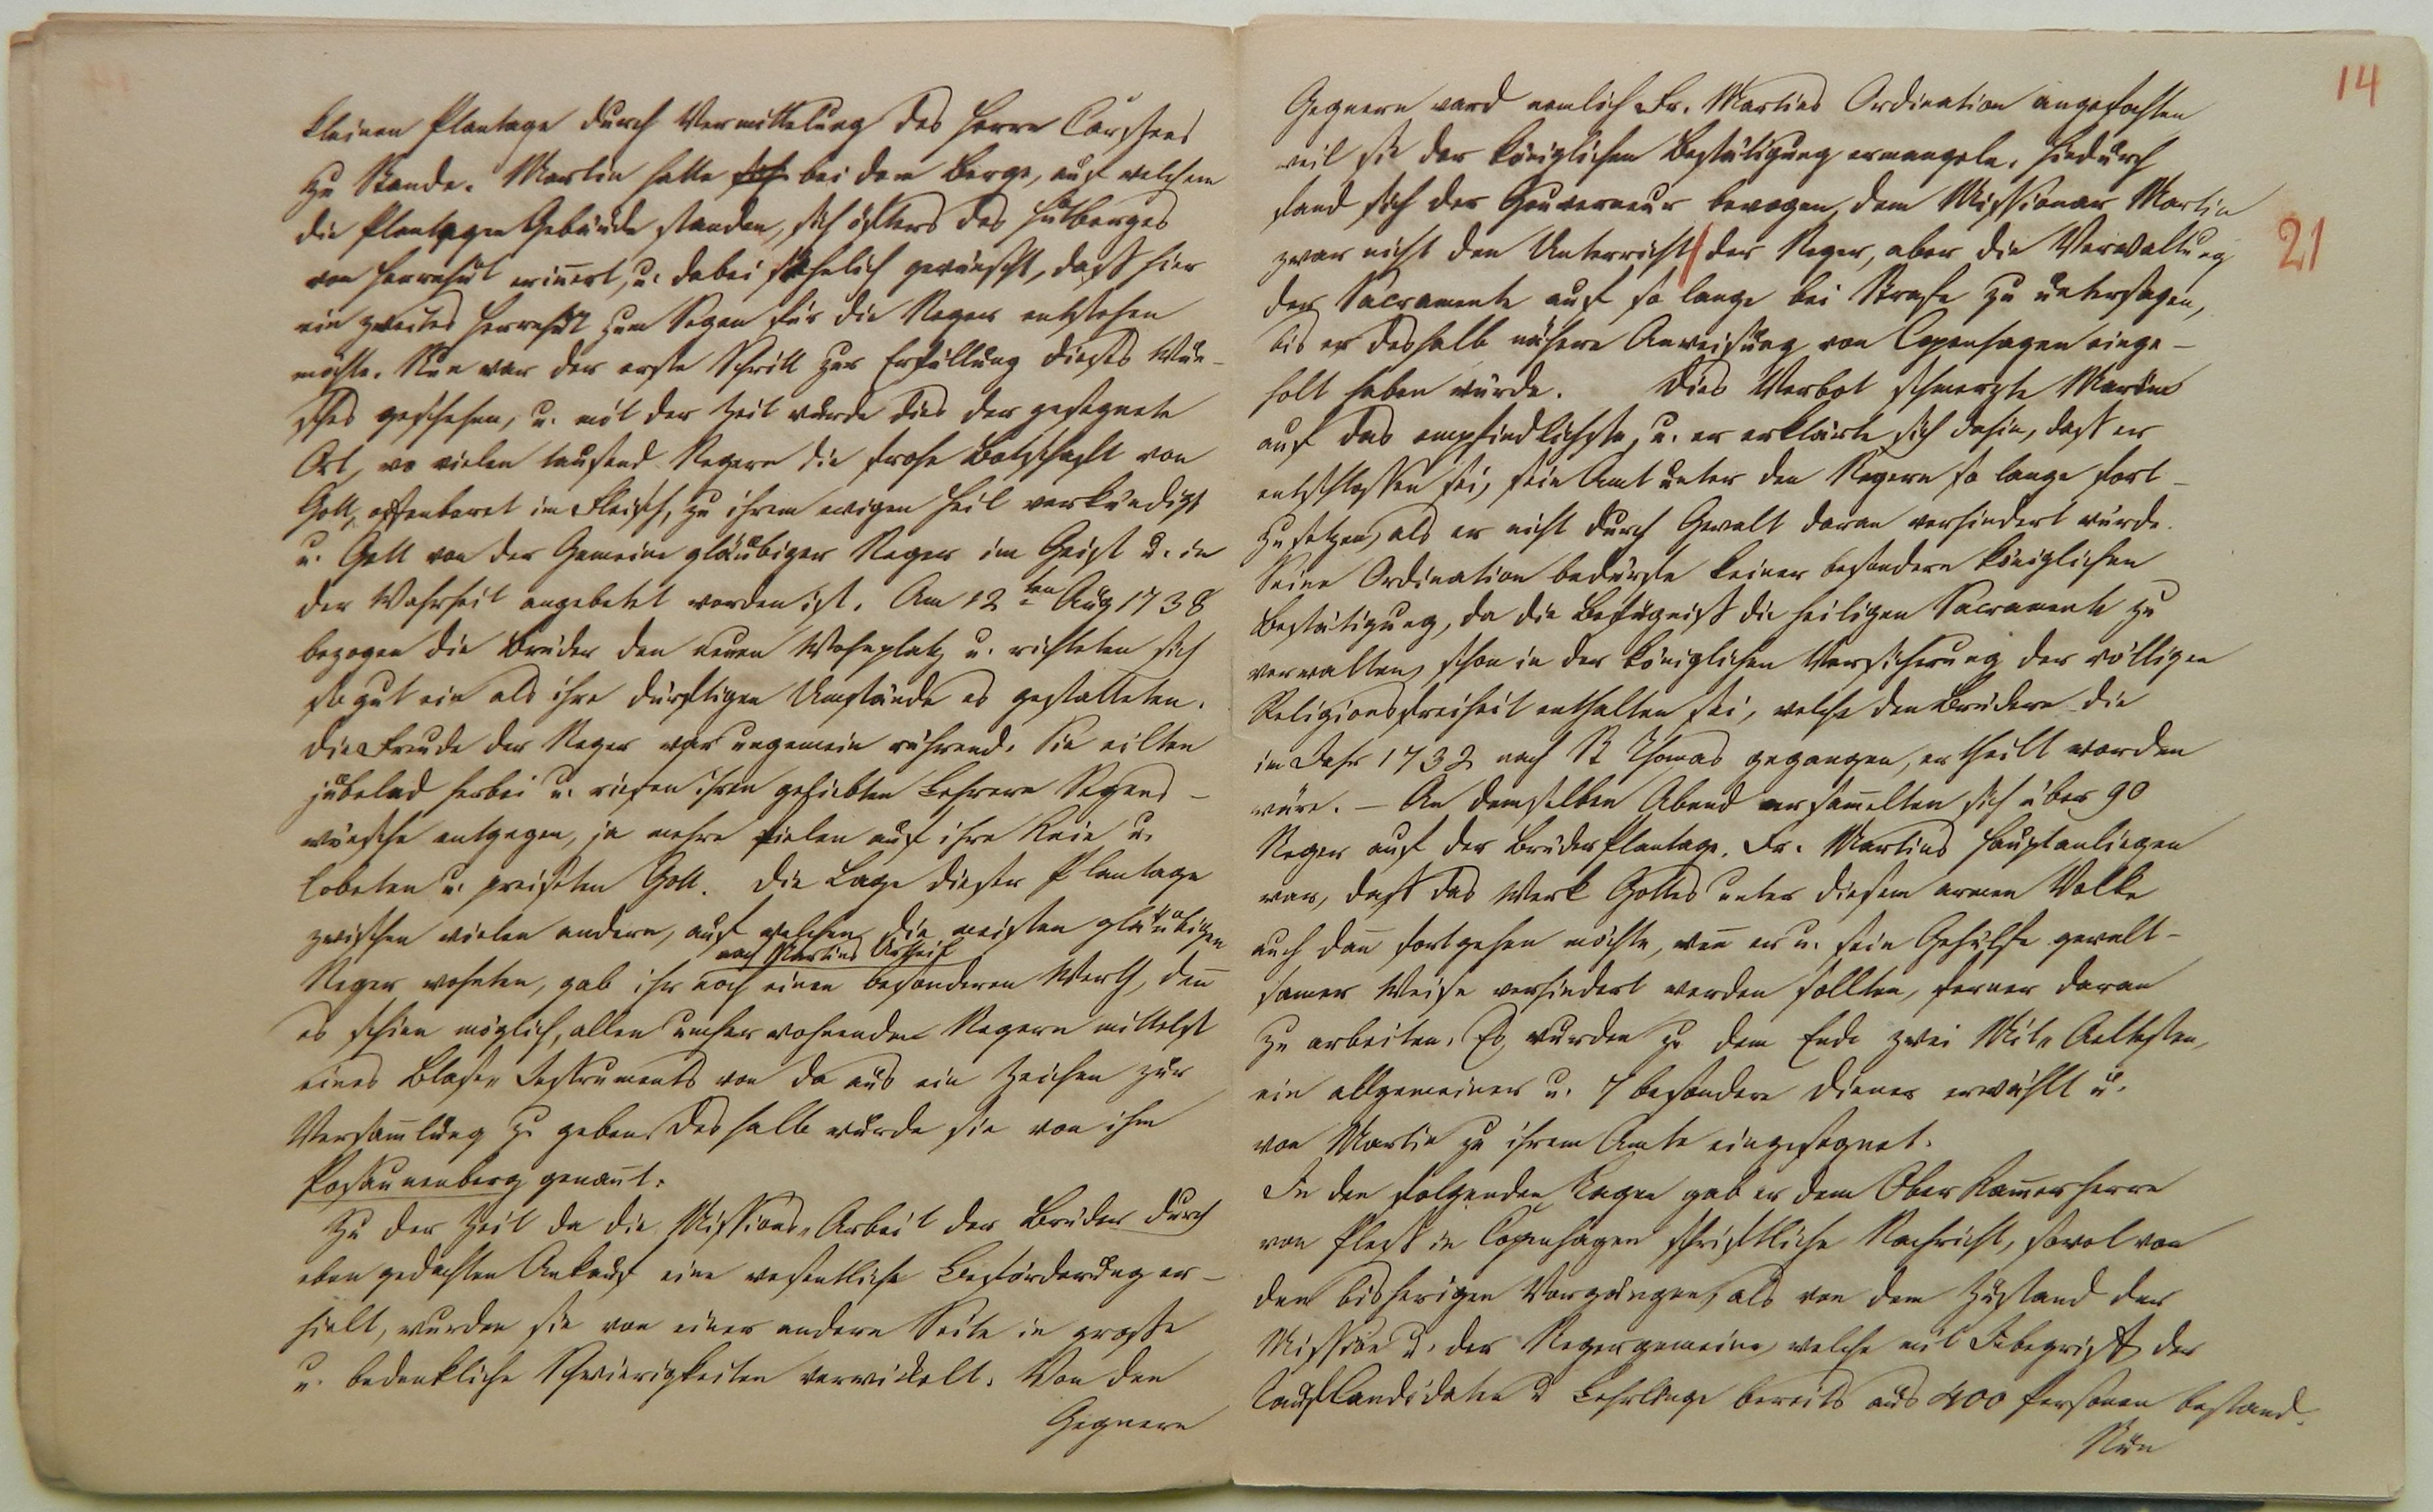 kleinen Plantage durch Vermittelung des Herrn Carstens
zu Stande. Martin hatte sich bei dem Berge, auf welchem
die Plantagen Gebäude standen, sich öfters des Hutberges
von Herrnhut erinnert, u. dabei sehnlich gewünscht, daß hier
ein zweites Herrnhut zum Segen für die Neger entstehen
möchte. Nun war der erste Schritt zur Erfüllung dieses Wun-
sches geschehen, u. mit der Zeit wurde dies der gesegnete
Ort, wo vielen tausend Negern die frohe Botschaft von
Gott, offenbaret im Fleisch, zu ihrem ewigen Heil verkündigt
u. Gott von der Gemeine gläubiger Neger im Geist u. in
der Wahrheit angebetet worden ist. Am 12ten Aug 1738
bezogen die Brüder den neuen Wohnplatz u. richteten sich
so gut ein als ihre dürftigen Umstände es gestatteten.
Die Freude der Neger war ungemein rührend. Sie eilten
jubelnd herbei u. riefen ihren geliebten Lehrern Segens-
wünsche entgegen, ja mehre fielen auf ihre Knie u.
lobeten u. preiseten Gott. Die Lage dieser Plantage
zwischen vielen andern, auf welchen die meisten gläubigen
nach Martins Urtheil
Neger wohnten, gab ihr noch einen besonderen Werth, den̄
es schien möglich, allen umher wohnenden Negern mittelst
eines Blase-Instruments von da aus ein Zeichen zur
Versam̄lung zu geben. Deshalb wurde sie von ihm
Posaunenberg genan̄t.
Zu der Zeit da die Missions-Arbeit der Brüder durch
eben gedachten Ankauf eine wesentliche Beförderung er-
hielt, wurden sie von einer andern Seite in grosse
u. bedenkliche Schwierigkeiten verwickelt. Von den
Gegnern
14
Gegnern ward nemlich Br. Martins Ordination angefochten
weil sie der königlichen Bestätigung ermangele. Hiedurch
fand sich der Gouverneur bewogen, dem Missionar Martin
zwar nicht den Unterricht der Neger, aber die Verwaltung
21
der Sacramente auf so lange bei Strafe zu untersagen,
bis er deshalb nähere Anweisung von Copenhagen einge-
holt haben würde. Dies Verbot schmerzte Martin
auf das empfindlichste, u. er erklärte sich dahin, daß er
entschlossen sei, sein Amt unter den Negern so lange fort-
zusetzen, als er nicht durch Gewalt daran verhindert würde.
Seine Ordination bedürfte keiner besondern königlichen
Bestätigung, da die Befugniß die heiligen Sacramente zu
verwalten, schon in der königlichen Versicherung der völligen
Religionsfreiheit enthalten sei, welche den Brüdern die
im Jahr 1732 nach St Thomas gegangen, ertheilt worden
wäre. – An demselben Abend versam̄elten sich über 90
Neger auf der Brüder Plantage. Br. Martins Hauptanliegen
war, daß das Werk Gottes unter diesem armen Volke
auch dan̄ fortgehen möchte, wen̄ er u. sein Gehülfe gewalt-
samer Weise verhindert werden sollten, ferner daran
zu arbeiten. Es wurden zu dem Ende zwei Mit-Aeltesten,
ein allgemeiner u. 7 besondere Diener erwählt u.
von Martin zu ihrem Amte eingesegnet.
In den folgenden Tagen gab er dem Ober Kam̄erherrn
von Pless in Copenhagen schriftliche Nachricht, sowol von
den bisherigen Vorgängen, als von dem Zustand der
Mission u. der Negergemeine, welche mit Inbegriff der
TaufCandidaten u Lehrlinge bereits aus 400 Personen bestand.
Nun